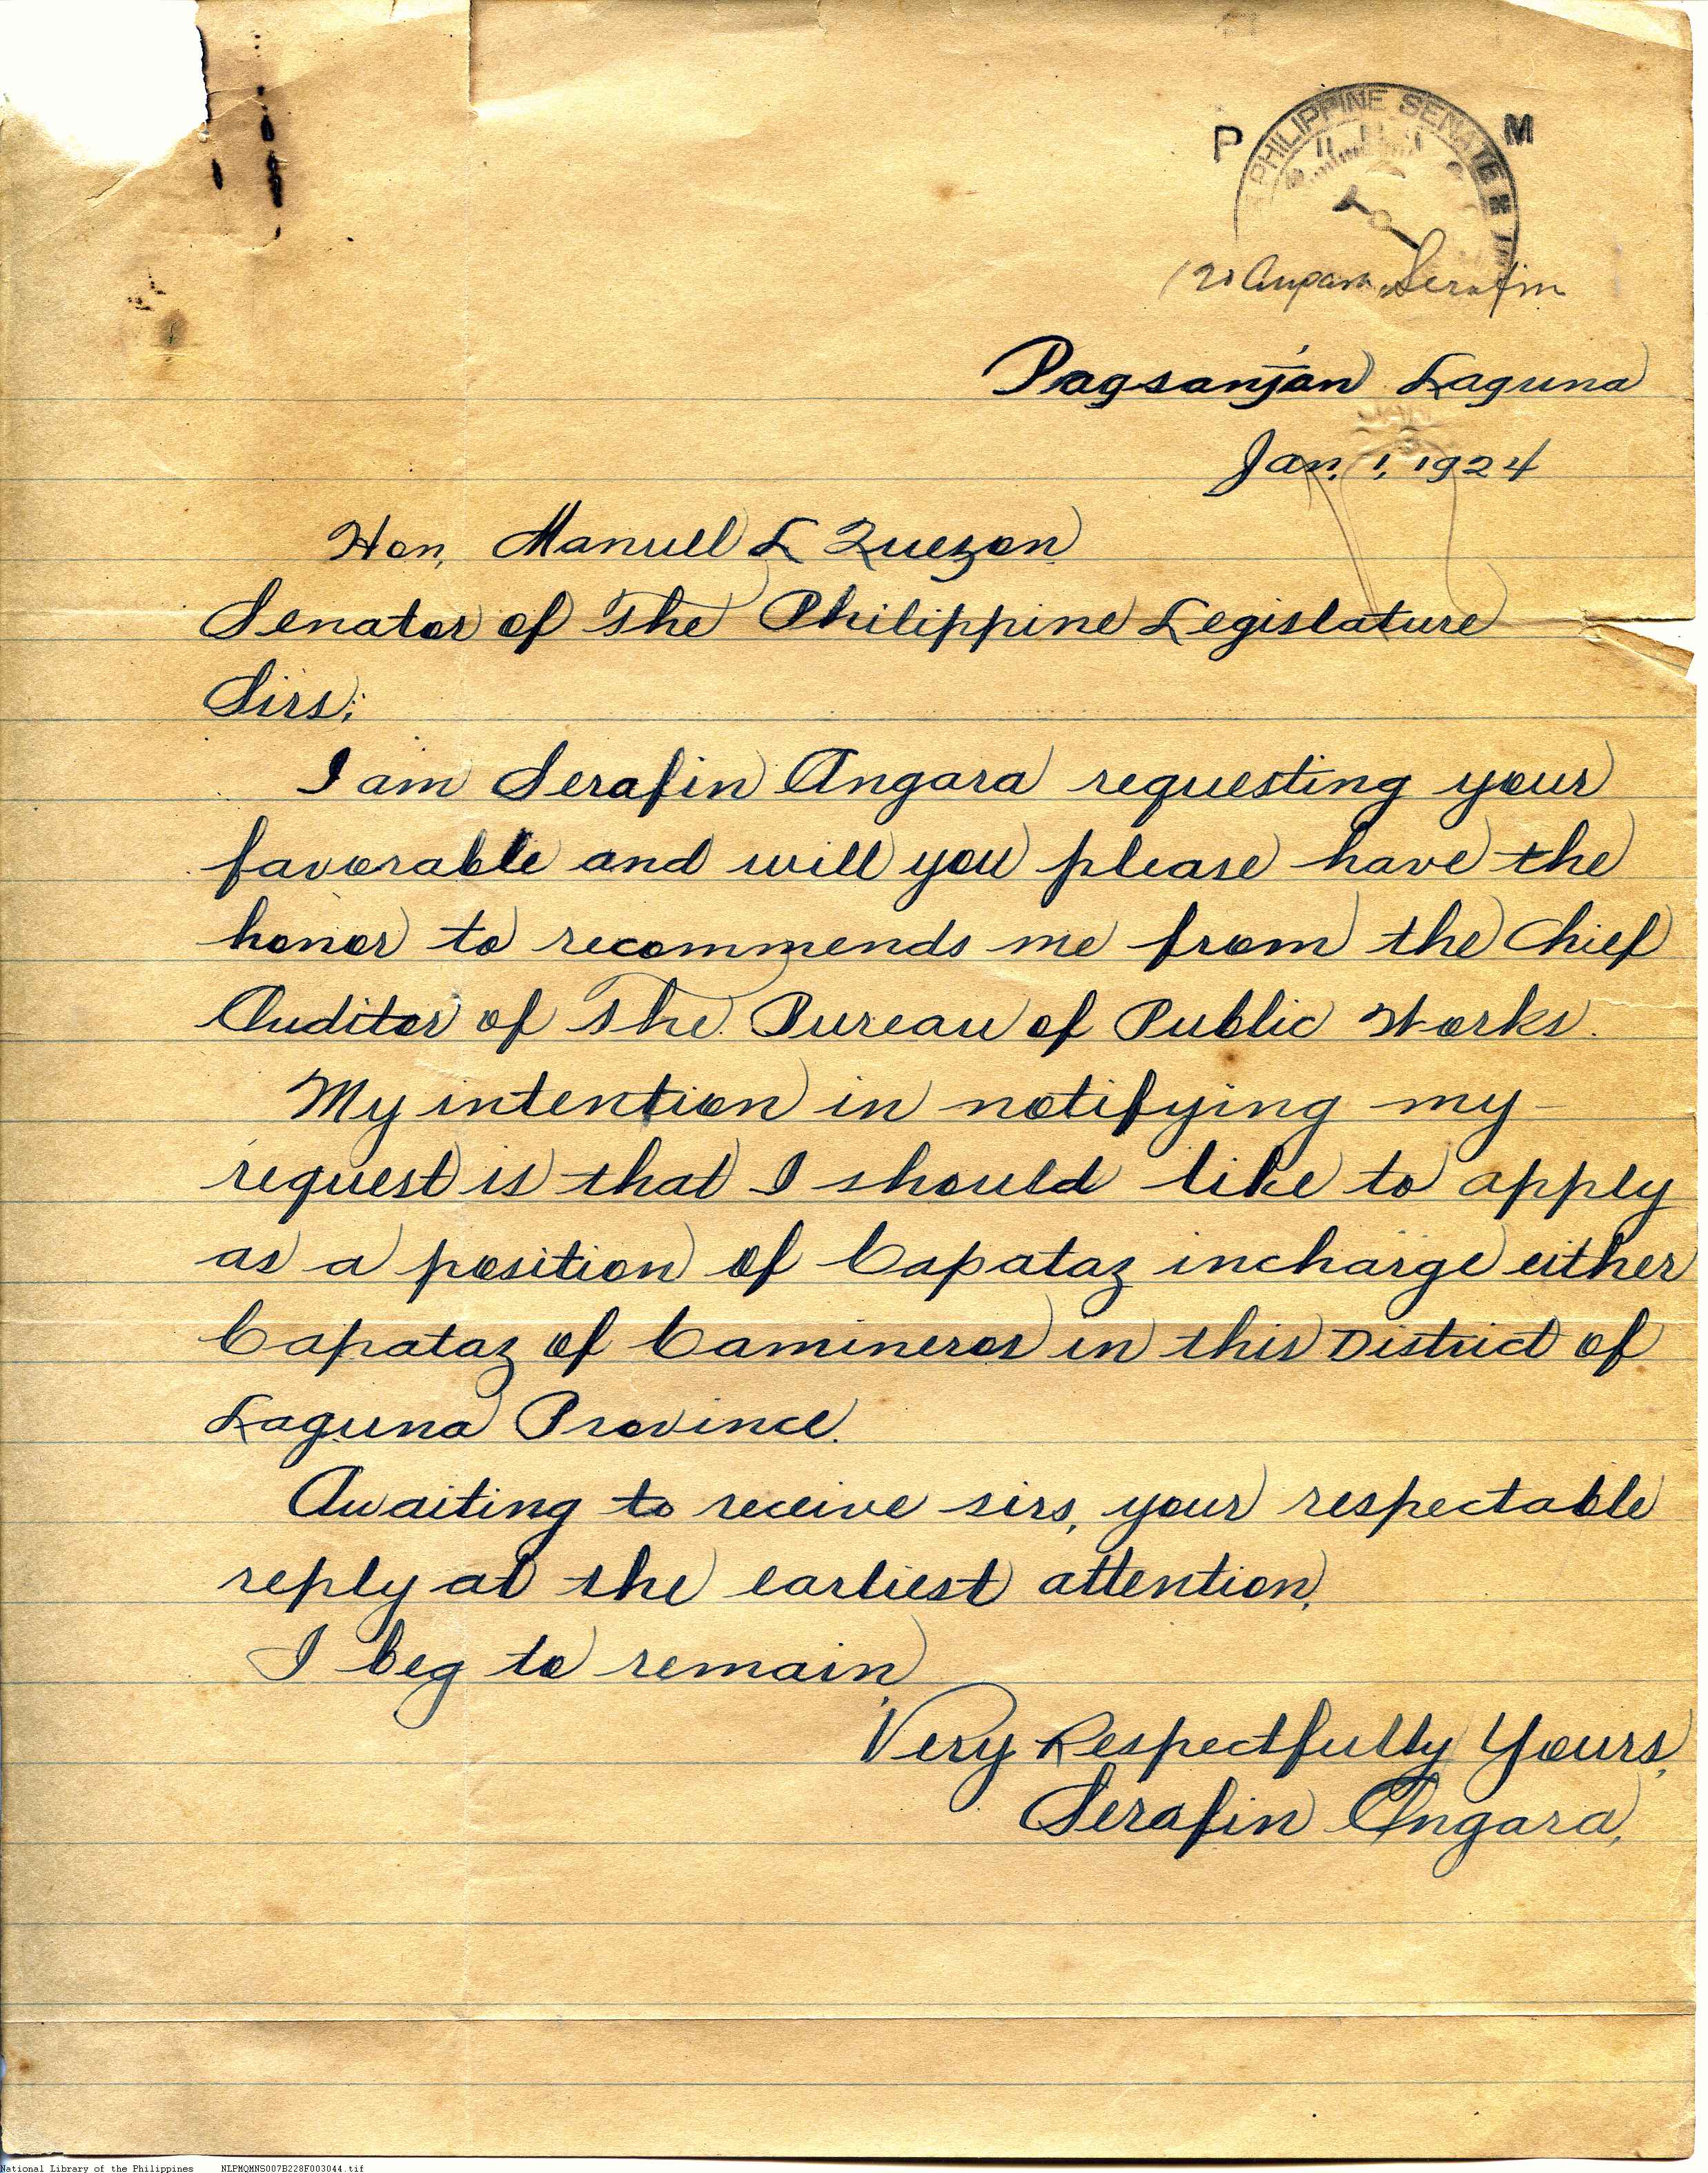 P M
PHILIPPINE SENATE
Angara, Serafin
Pagsanján Laguna
Jan. 1, 1924
Hon. Manuel L Quezon
Senator of The Philippine Legislature
Sirs;
I am Serafin Angara requesting your
favorable and will you please have the
honor to recommends me from the Chief
Auditor of The Bureau of Public Works.
My intention in notifying my
request is that I should like to apply
as a position of Capataz incharge either
Capataz of Camineros in this District of
Laguna Province.
Awaiting to receive sirs, your respectable
reply at the earliest attention,
I beg to remain
Very Respectfully Yours,
Serafin Angara,
National Library of the Philippines NLPMQMNS007B228F003044.tif